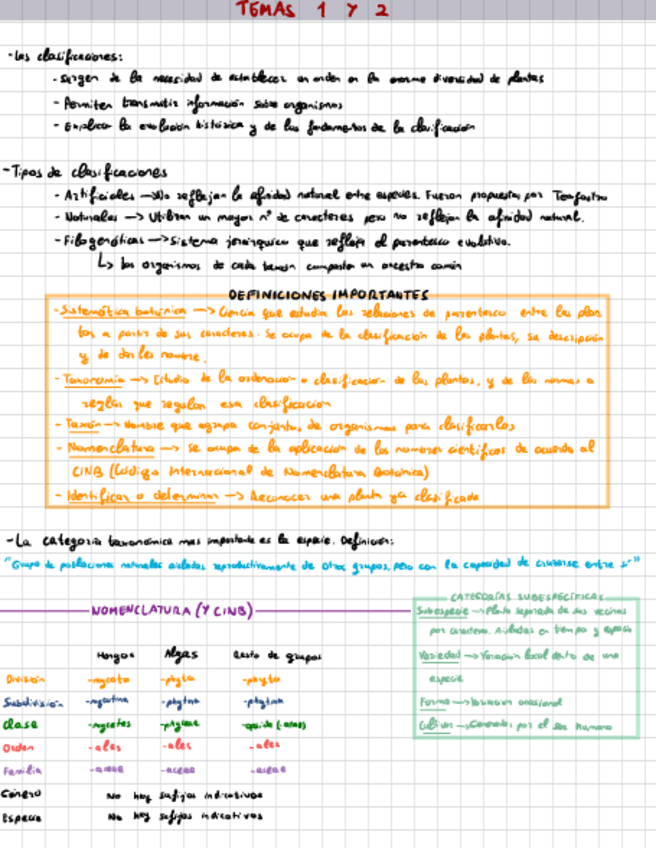 TEMAS 1 Y 2
- Las clasificaciones:
- Surgen de la necesidad de establecer un orden en la enorme diversidad de plantas
- Permiten transmitir información sobre organismos
- Explican la evolución histórica y de los fundamentos de la clasificación
- Tipos de clasificaciones
- Artificiales → No reflejan la afinidad natural entre especies. Fueron propuestas por Teofastro
- Naturales → Utilizan un mayor nº de caracteres pero no reflejan la afinidad natural.
- Filogenéticas → Sistema jerárquico que refleja el parentesco evolutivo.
↳ los organismos de cada taxón comparten un ancestro común
DEFINICIONES IMPORTANTES
- Sistemática botánica → Ciencia que estudia las relaciones de parentesco entre las plan
tas a partir de sus caracteres. Se ocupa de la clasificación de las plantas, su descripción
y de darles nombre.
- Taxonomía → Estudio de la ordenación o clasificación de las plantas, y de las normas o
reglas que regulan esa clasificación
- Taxón → Nombre que agrupa conjuntos de organismos para clasificarlos
- Nomenclatura → Se ocupa de la aplicación de los nombres científicos de acuerdo al
CINB (Código Internacional de Nomenclatura Botánica)
- Identificar o determinar → Reconocer una planta ya clasificada
- La categoría taxonómica mas importante es la especie. Definición:
"Grupo de poblaciones naturales aisladas reproductivamente de otros grupos, pero con la capacidad de cruzarse entre sí"
NOMENCLATURA (Y CINB)
CATEGORÍAS SUBESPECÍFICAS
Subespecie → Planta separada de sus vecinas
por caracteres. Aisladas en tiempo y espacio
Variedad → Variación local dentro de una
especie
Forma → Variación ocasional
Cultivar → Generados por el ser humano
Hongos Algas Resto de grupos
División -mycota -phyta -phyta
Subdivisión -mycotina -phytina -phytina
Clase -mycetes -phyceae -opsida
Orden -ales -ales -ales
Familia -aceae -aceae -aceae
Género No hay sufijos indicativos
Especie No hay sufijos indicativos